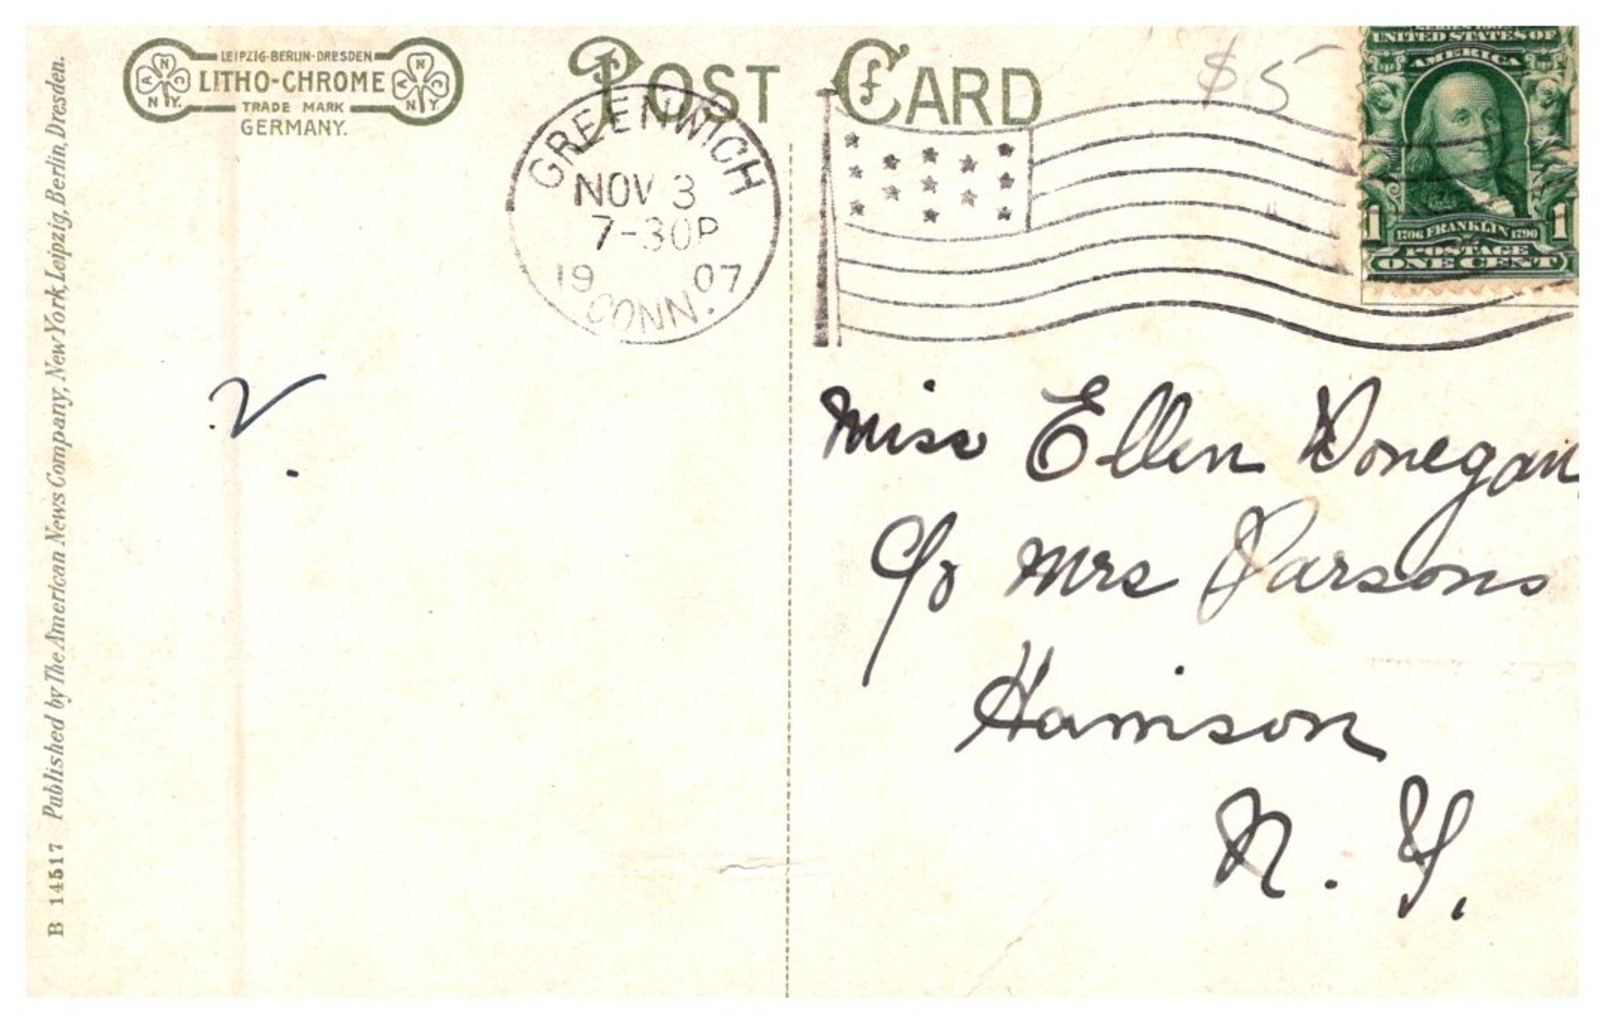 LEIPZIG-BERLIN-DRESDEN
LITHO-CHROME
TRADE MARK
GERMANY.
A N C
N.Y.
A N C
N.Y.
POST CARD
$5
GREENWICH
NOV 3
7-30P
1907
CONN.
UNITED STATES OF
AMERICA
1 1706 FRANKLIN 1790 1
POSTAGE
ONE CENT
Miss Ellen Donegan
c/o Mrs Parsons
Harrison
N. Y.
B 14517 Published by The American News Company, New York, Leipzig, Berlin, Dresden.